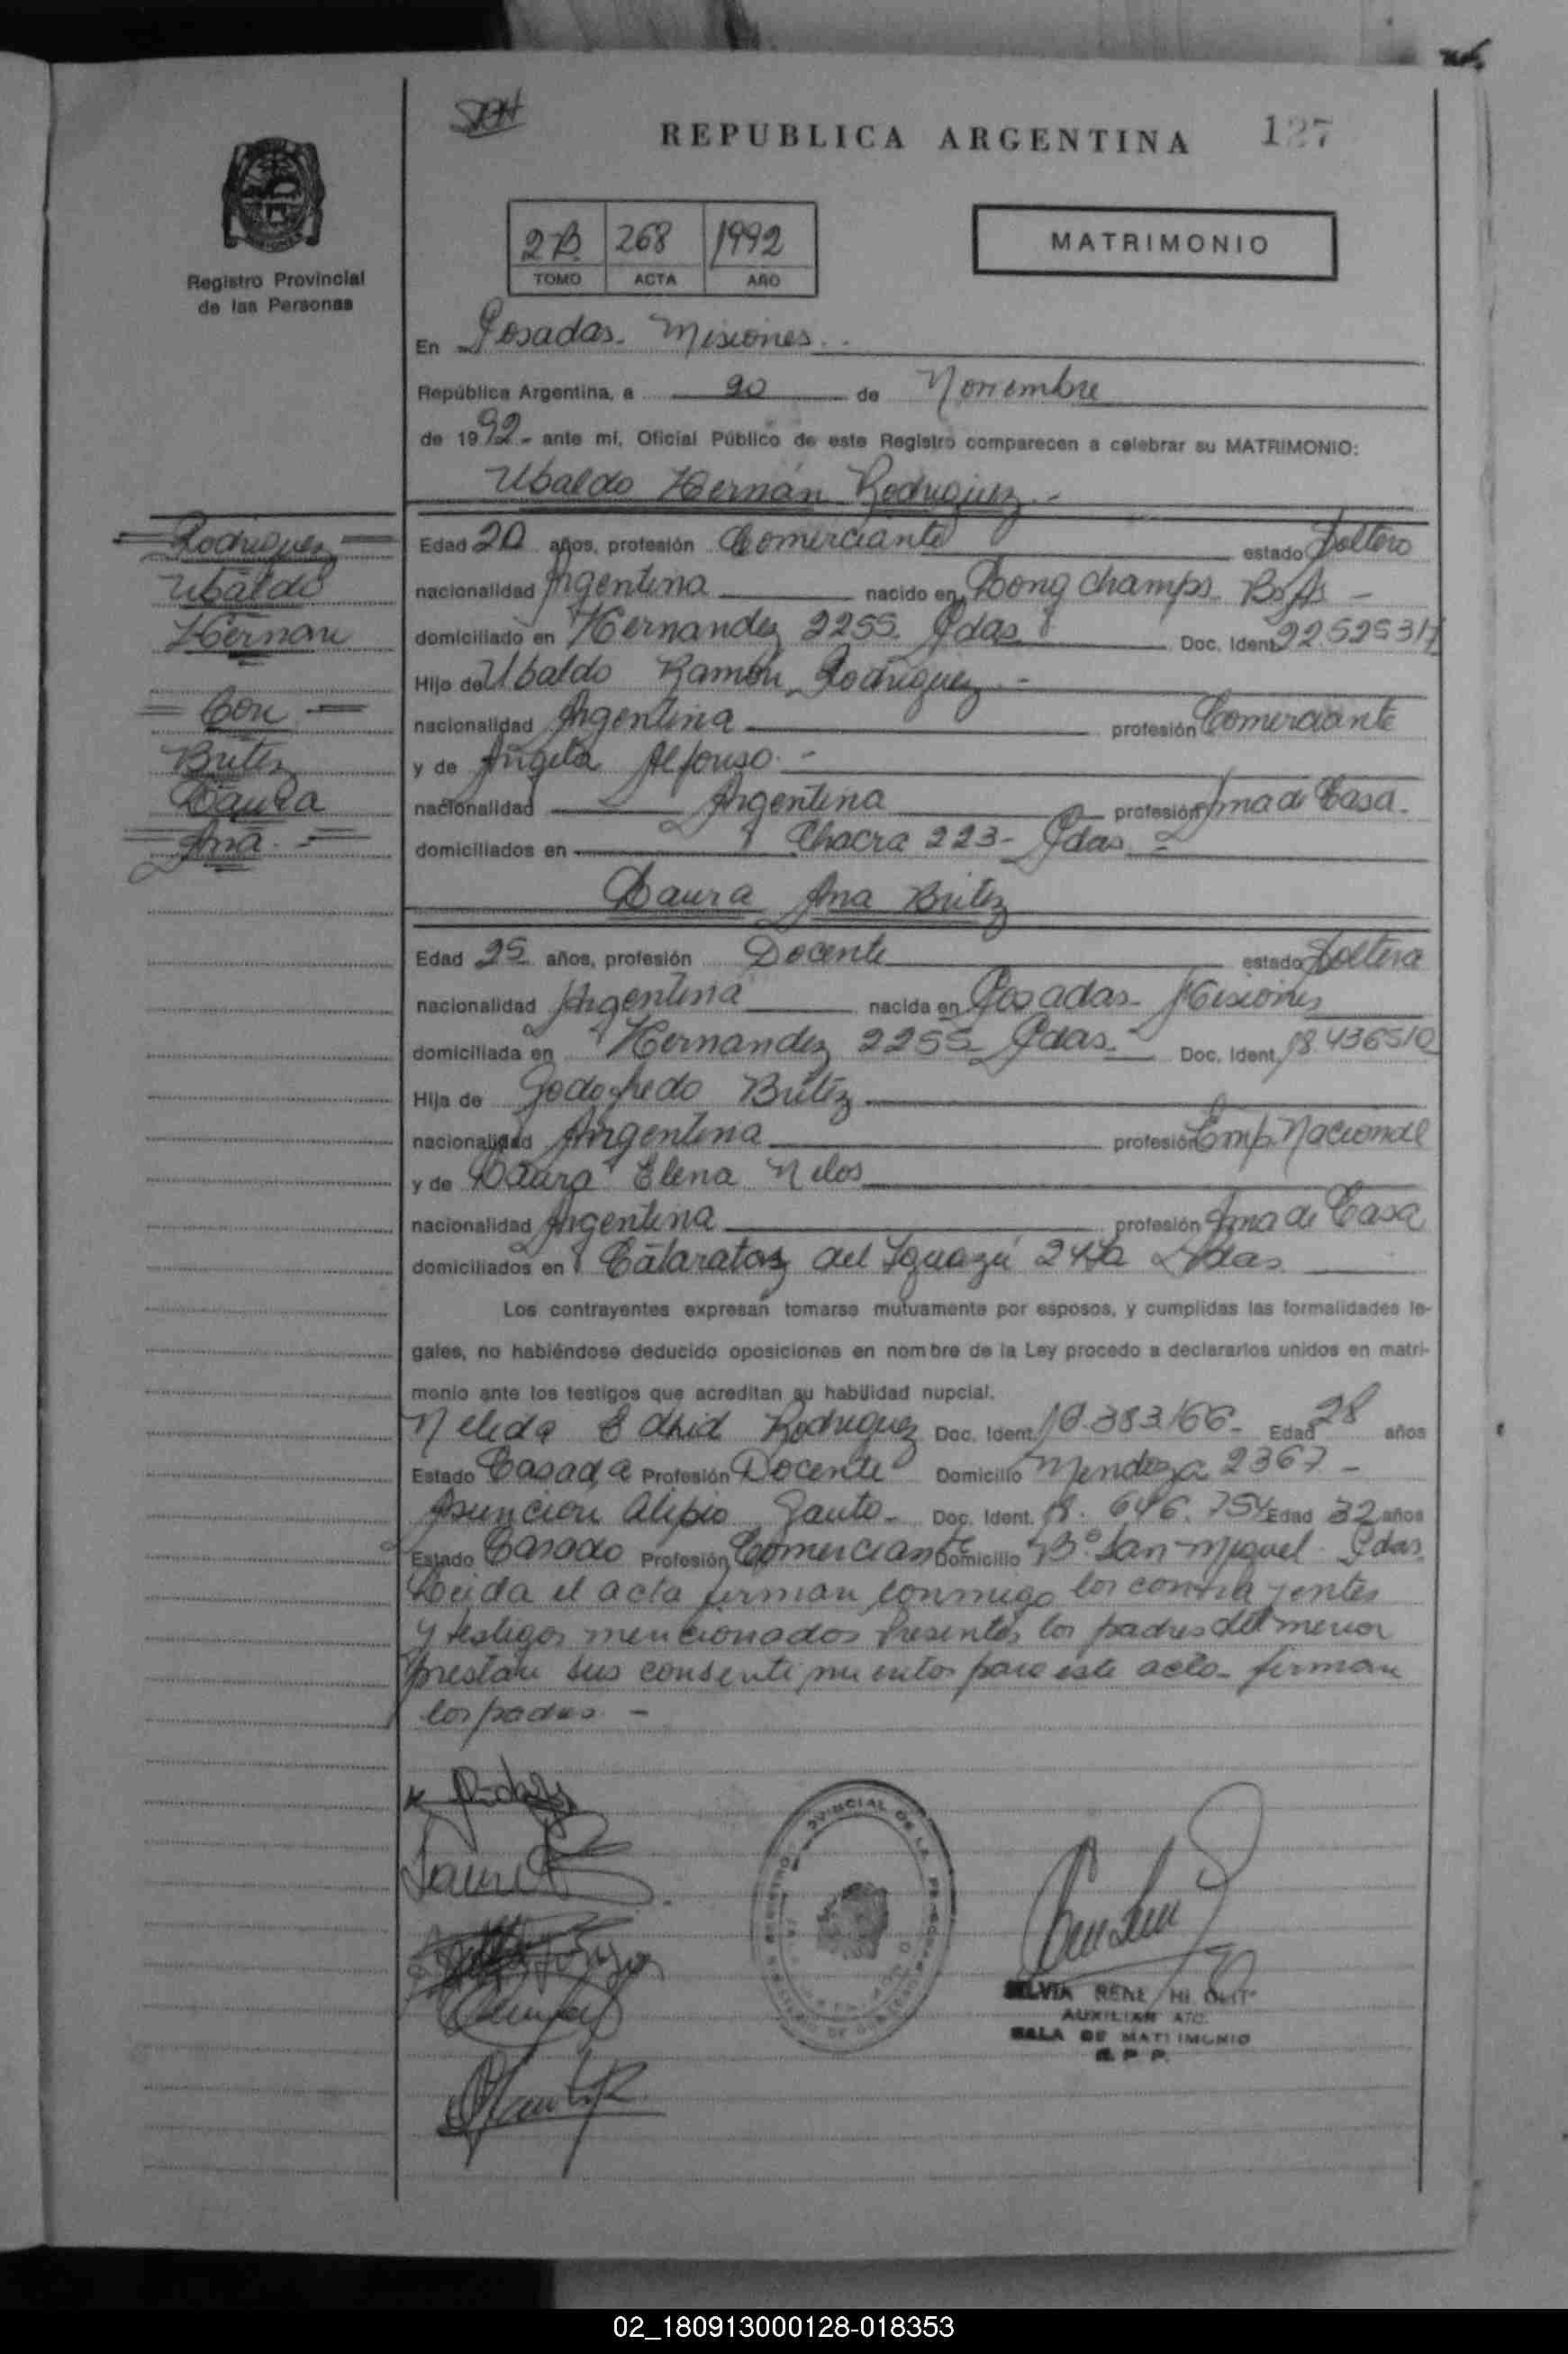 REPUBLICA ARGENTINA 127
2B 268 1992
TOMO ACTA AÑO
MATRIMONIO
Registro Provincial
de las Personas
En Posadas - Misiones
República Argentina, a 20 de Noviembre
de 1992 - ante mí, Oficial Público de este Registro comparecen a celebrar su MATRIMONIO:
Ubaldo Hernán Rodriguez -
Rodriguez
Ubaldo
Hernan
Con
Britez
Laura
Ana
Edad 20 años, profesión Comerciante estado Soltero
nacionalidad Argentina nacido en Longchamps - Bs As -
domiciliado en Hernandez 2255 Pdas Doc. Ident. 22.525.317
Hijo de Ubaldo Ramón Rodriguez -
nacionalidad Argentina profesión Comerciante
y de Angela Alfonso -
nacionalidad Argentina profesión Ama de Casa -
domiciliados en Chacra 223 - Pdas -
Laura Ana Britez
Edad 25 años, profesión Docente estado Soltera
nacionalidad Argentina nacida en Posadas - Misiones
domiciliada en Hernandez 2255 Pdas. Doc. Ident. 18.436510
Hija de Godofredo Britez
nacionalidad Argentina profesión Emp. Nacional
y de Laura Elena
nacionalidad Argentina profesión Ama de Casa
domiciliados en Cataratas del Iguazú Pdas
Los contrayentes expresan tomarse mutuamente por esposos, y cumplidas las formalidades le-
gales, no habiéndose deducido oposiciones en nombre de la Ley procedo a declararlos unidos en matri-
monio ante los testigos que acreditan su habilidad nupcial.
Nelida Rodriguez Doc. Ident. Edad 28 años
Estado Casada Profesión Docente Domicilio Mendoza 2367 -
Asuncion Alipio Doc. Ident. Edad 32 años
Estado Casado Profesión Comerciante Domicilio Bº San Miguel - Pdas
Leida el acta firman conmigo los contrayentes
y testigos mencionados Presentes los padres del menor
prestan sus consentimientos para este acto - firman
los padres -
AUXILIAR
SALA DE MATRIMONIO
R. P. P.
02_180913000128-018353